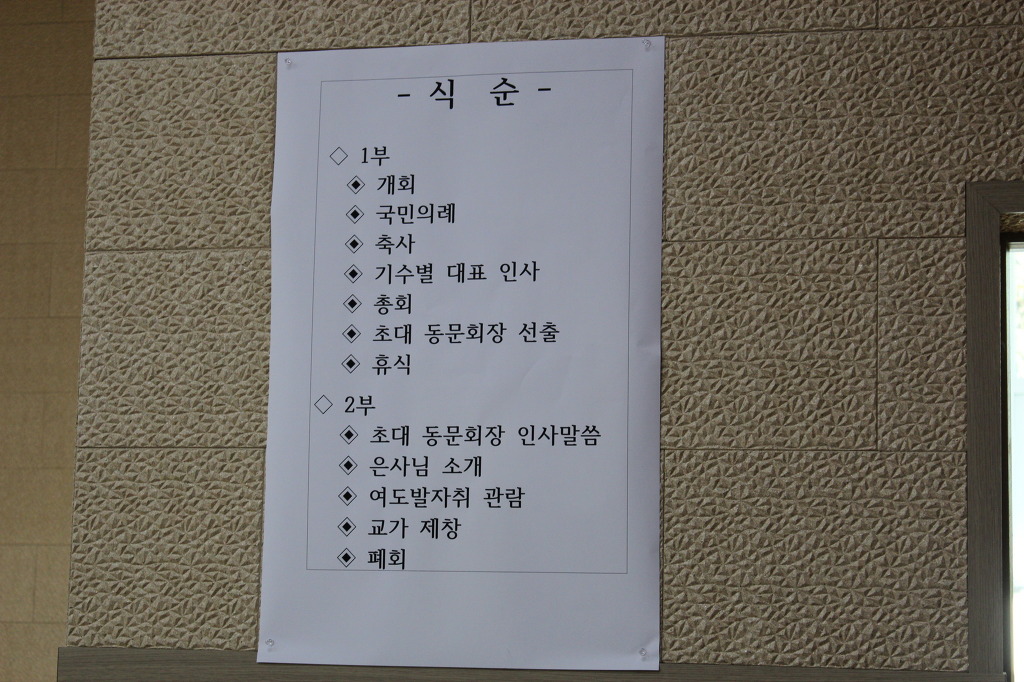 - 식 순 -
◇ 1부
◈ 개회
◈ 국민의례
◈ 축사
◈ 기수별 대표 인사
◈ 총회
◈ 초대 동문회장 선출
◈ 휴식
◇ 2부
◈ 초대 동문회장 인사말씀
◈ 은사님 소개
◈ 여도발자취 관람
◈ 교가 제창
◈ 폐회